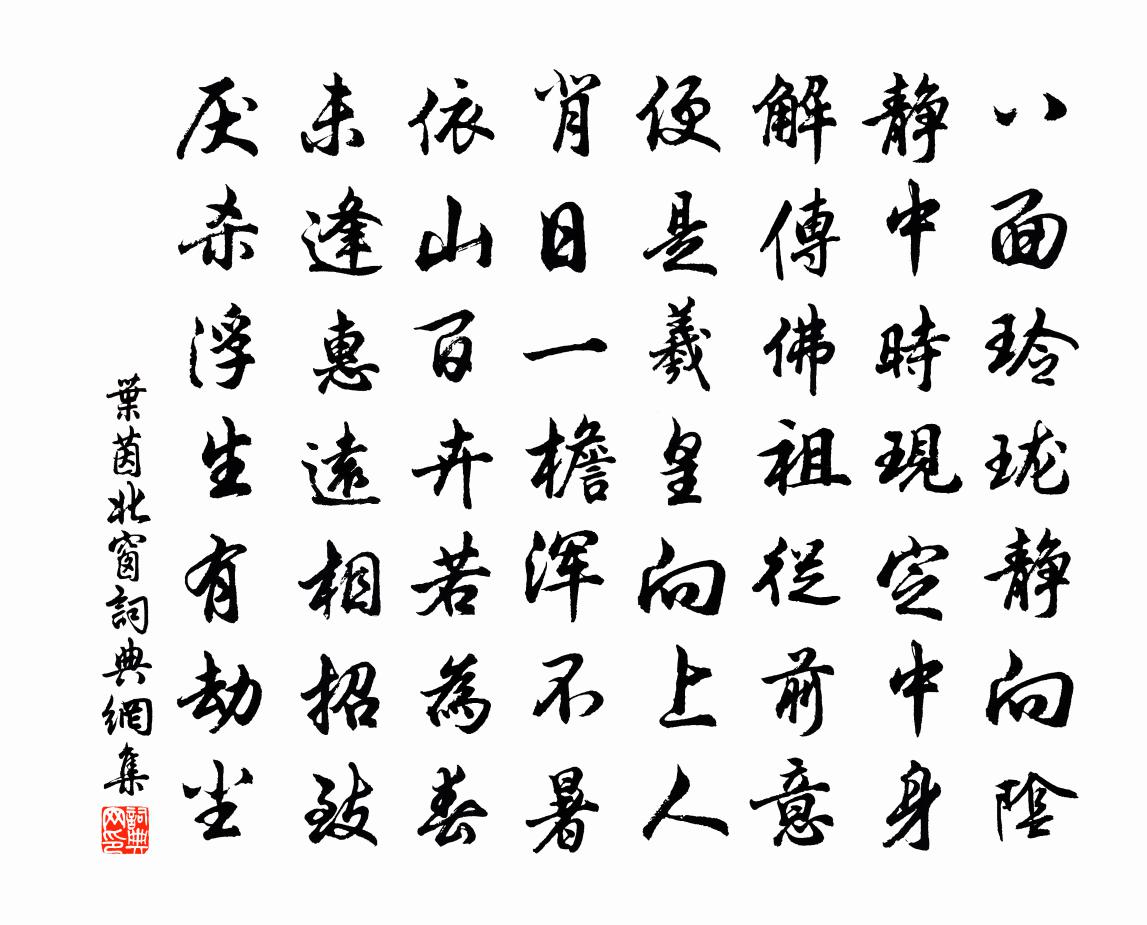 八面玲珑静向陰
静中時現定中身
解傳佛祖從前意
便是羲皇向上人
背日一檐浑不暑
依山百卉若為春
未逢惠遠相招致
厌杀浮生有劫尘
葉茵北窗詞典網集
詞典网印